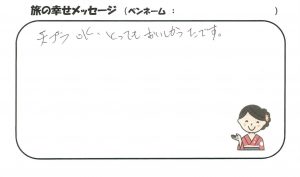 旅の幸せメッセージ（ペンネーム：　　　　　　　）
天プラ OK. とってもおいしかったです。